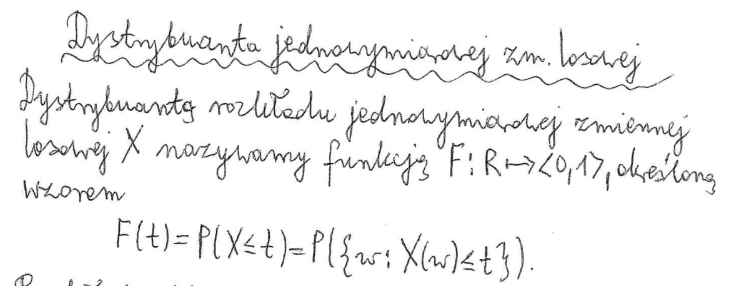 Dystrybuanta jednowymiarowej zm. losowej
Dystrybuantą rozkładu jednowymiarowej zmiennej
losowej X nazywamy funkcję F: R↦<0,1>, określoną
wzorem
F(t)=P(X≤t)=P({w: X(w)≤t}).